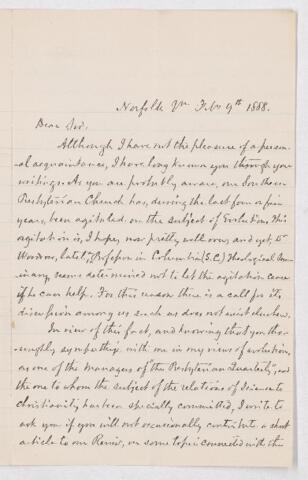 Norfolk Va. Feb. 9th 1888.
Dear Sir,
Although I have not the pleasure of a person-
al acquaintance, I have long known you through your
writings. As you are probably aware, our Southern
Presbyterian Church has, during the last four or five
years, been agitated on the subject of Evolution. This
agitation is, I hope, now pretty well over, and yet, Dr
Woodrow, late Professor in Columbia (S.C.) Theological Sem-
inary, seems determined not to let the agitation cease
if he can help. For this reason there is a call for its
discussion among us such as does not exist elsewhere.
In view of this fact, and knowing that you tho-
roughly sympathise with me in my view of evolution,
as one of the managers of the "Presbyterian Quarterly", and
the one to whom the subject of the relations of Science to
Christianity has been specially committed, I write to
ask you if you will not occasionally contribute a short
article to our Review, on some topic connected with the